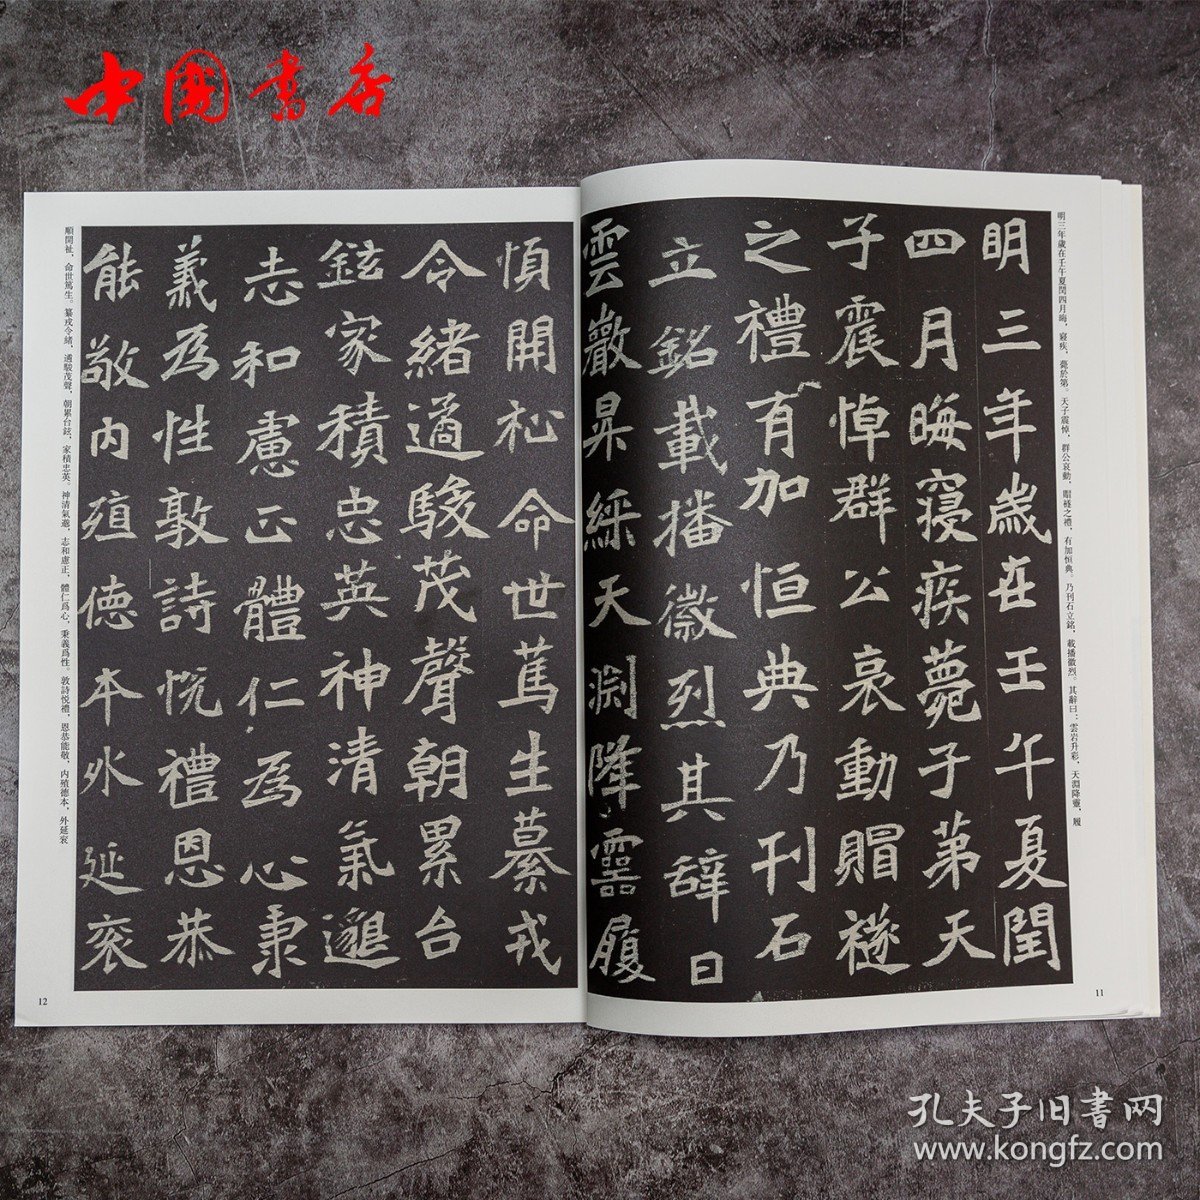 中国书店
明三年歲在壬午夏閏四月晦,寢疾,薨於第。天子震悼,群公哀動,賵襚之禮,有加恒典。乃刊石立銘,載播徽烈。其辭曰:雲岩升彩,天淵降靈,履
明三年歲在壬午夏閏
四月晦寢疾薨于第天
子震悼群公哀動賵襚
之禮有加恒典乃刊石
立銘載播徽烈其辭曰
雲巖昇綵天淵降靈履
11
順開祉,命世篤生。纂戎令緒,邁駿茂聲,朝累台鉉,家積忠英。神清氣邈,志和慮正,體仁爲心,秉義爲性。敦詩悦禮,恩恭能敬,内殖德本,外延衮
慎開祉命世篤生纂戎
令緒邁駿茂聲朝累台
鉉家積忠英神清氣邈
志和慮正體仁為心秉
義為性敦詩悦禮恩恭
能敬内殖德本外延衮
12
孔夫子旧书网
www.kongfz.com